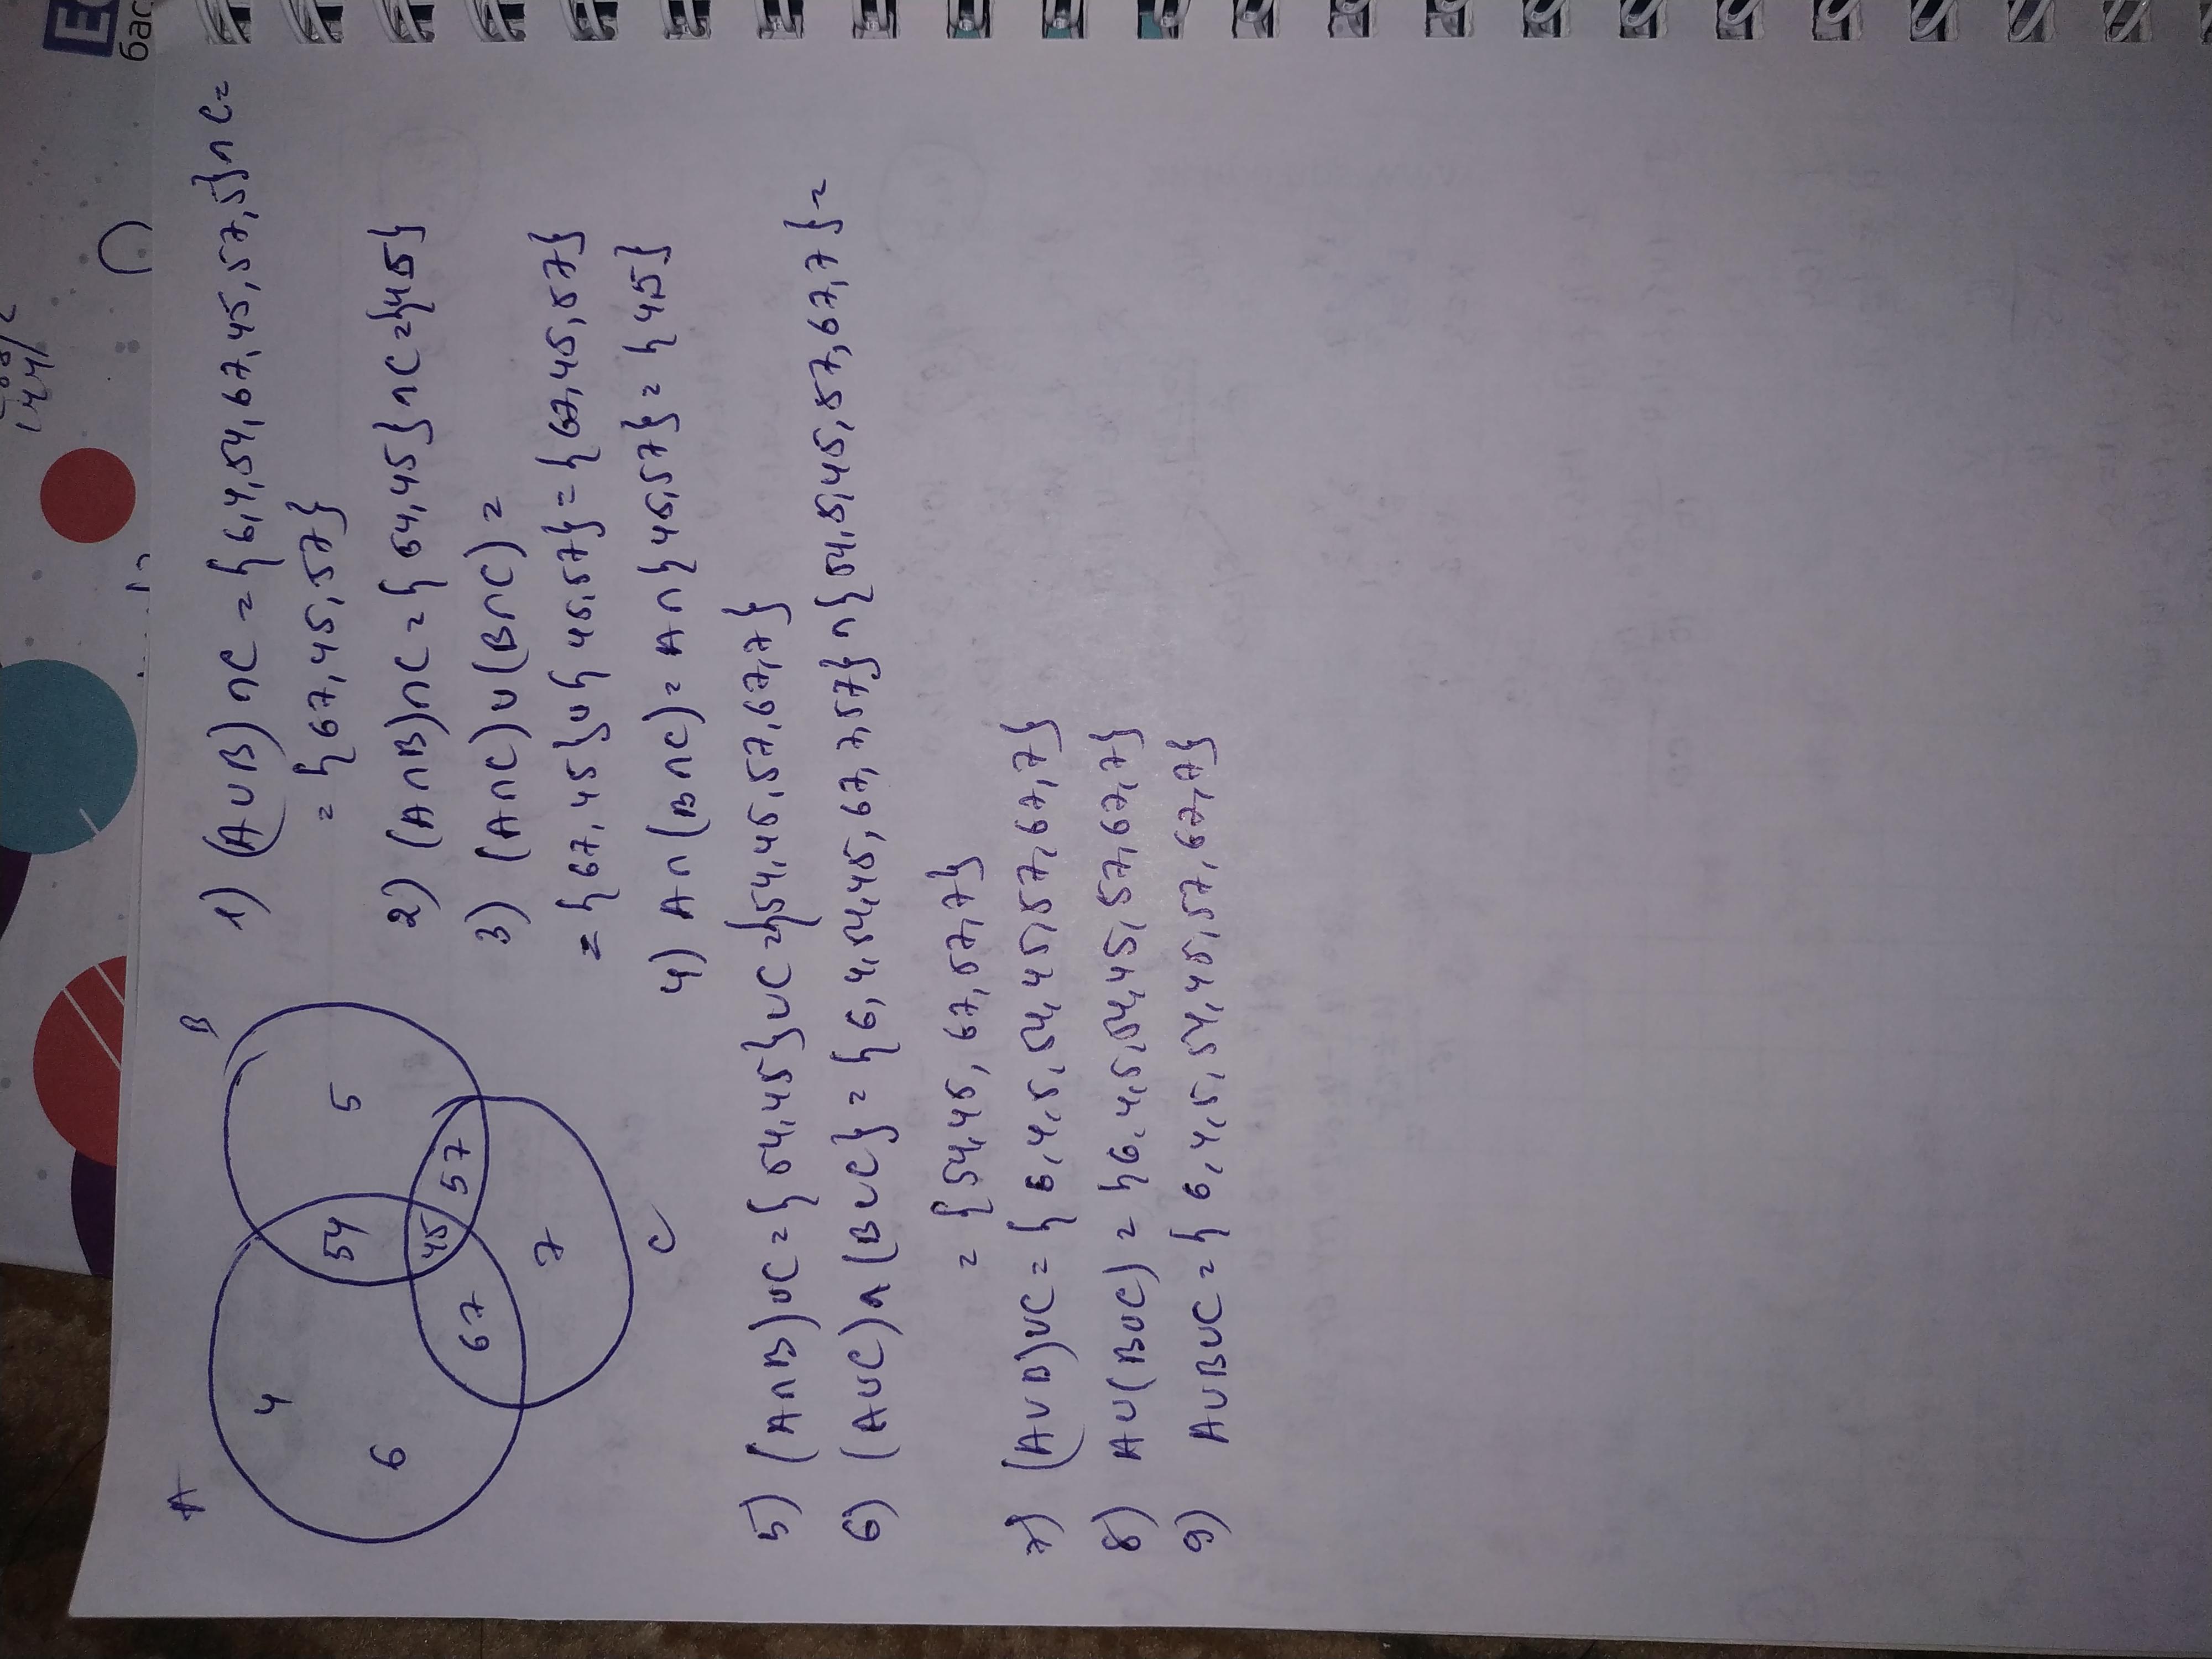 A
B
4
54
5
6
67
45
57
7
C
1) (A∪B)∩C = {6,4,54,67,45,57,5}∩C=
= {67,45,57}
2) (A∩B)∩C = {54,45}∩C={45}
3) (A∩C)∪(B∩C) =
= {67,45}∪{45,57}={67,45,57}
4) A∩(B∩C)= A∩{45,57}={45}
5) (A∩B)∪C={54,45}∪C={54,45,57,67,7}
6) (A∪C)∩(B∪C}={6,4,54,45,67,7,57}∩{54,5,45,57,67,7}=
= {54,45,67,57,7}
7) (A∪B)∪C={6,4,5,54,45,57,67,7}
8) A∪(B∪C)={6,4,5,54,45,57,67,7}
9) A∪B∪C={6,4,5,54,45,57,67,7}